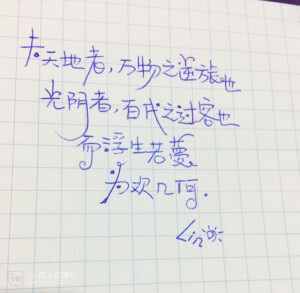 夫天地者,万物之逆旅也
光阴者,百代之过客也
而浮生若夢
为欢几何.